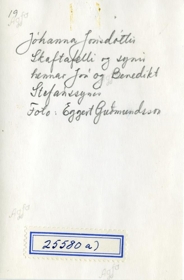 19
Jóhanna Jónsdóttir
Skaftafelli og synir
hennar Jón og Benedikt
Stefánssynir
Foto: Eggert Guðmundsson
25580 a)